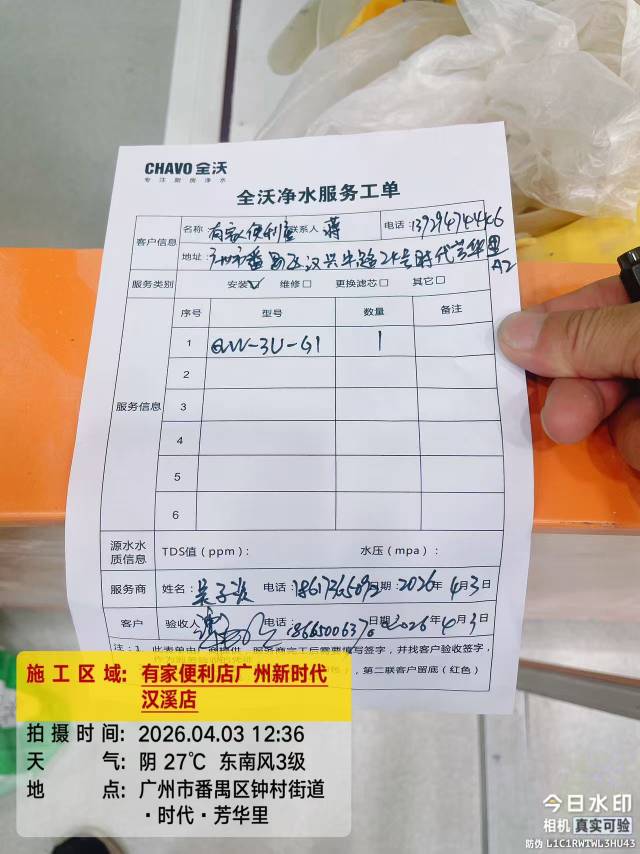 CHAVO 全沃
专注厨房净水
全沃净水服务工单
客户信息
名称: 有家便利店 联系人 蒋 电话: 13929474446
地址: 广州市番禺区汉兴中路24号时代芳华里 A2
服务类别 安装☑ 维修□ 更换滤芯□ 其它□
服务信息
序号 型号 数量 备注
1 QW-3U-G1 1
2
3
4
5
6
源水水质信息 TDS值（ppm）: 水压（mpa）:
服务商 姓名: 电话: 日期: 2026年4月3日
客户 验收人 电话: 日期: 2026年4月3日
注: 1、此表单由厂商提供，服务商完工后需要填写签字，并找客户验收签字，
第二联客户留底（红色）
施工区域: 有家便利店广州新时代
汉溪店
拍摄时间: 2026.04.03 12:36
天气: 阴 27℃ 东南风3级
地点: 广州市番禺区钟村街道
·时代·芳华里
今日水印
相机 真实可验
防伪 L1C1RWTWL3HU43